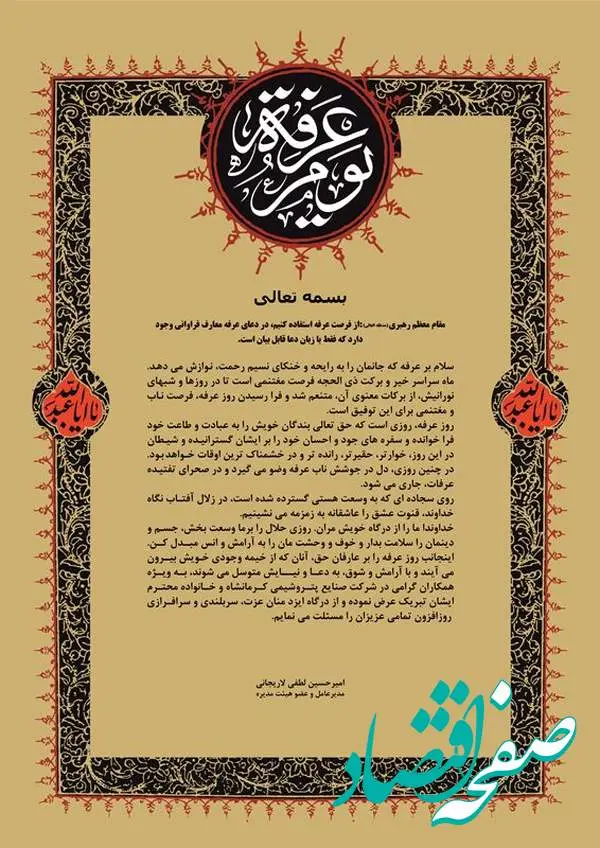 یوم عرفة
بسمه تعالی
مقام معظم رهبری (مدظله العالی): از فرصت عرفه استفاده کنیم، در دعای عرفه معارف فراوانی وجود
دارد که فقط با زبان دعا قابل بیان است.
سلام بر عرفه که جانمان را به رایحه و خنکای نسیم رحمت، نوازش می دهد.
ماه سراسر خیر و برکت ذی الحجه فرصت مغتنمی است تا در روزها و شبهای
نورانیش، از برکات معنوی آن، متنعم شد و فرا رسیدن روز عرفه، فرصت ناب
و مغتنمی برای این توفیق است.
روز عرفه، روزی است که حق تعالی بندگان خویش را به عبادت و طاعت خود
فرا خوانده و سفره های جود و احسان خود را بر ایشان گسترانیده و شیطان
در این روز، خوارتر، حقیرتر، رانده تر و در خشمناک ترین اوقات خواهد بود.
در چنین روزی، دل در جوشش ناب عرفه وضو می گیرد و در صحرای تفتیده
عرفات، جاری می شود.
روی سجاده ای که به وسعت هستی گسترده شده است، در زلال آفتاب نگاه
خداوند، قنوت عشق را عاشقانه به زمزمه می نشینیم.
خداوندا ما را از درگاه خویش مران. روزی حلال را برما وسعت بخش، جسم و
دینمان را سلامت بدار و خوف و وحشت مان را به آرامش و انس مبدل کن.
اینجانب روز عرفه را بر عارفان حق، آنان که از خیمه وجودی خویش بیرون
می آیند و با آرامش و شوق، به دعا و نیایش متوسل می شوند، به ویژه
همکاران گرامی در شرکت صنایع پتروشیمی کرمانشاه و خانواده محترم
ایشان تبریک عرض نموده و از درگاه ایزد منان عزت، سربلندی و سرافرازی
روزافزون تمامی عزیزان را مسئلت می نمایم.
یا اباعبدالله
یا اباعبدالله
امیرحسین لطفی لاریجانی
مدیرعامل و عضو هیئت مدیره
صفحه اقتصاد